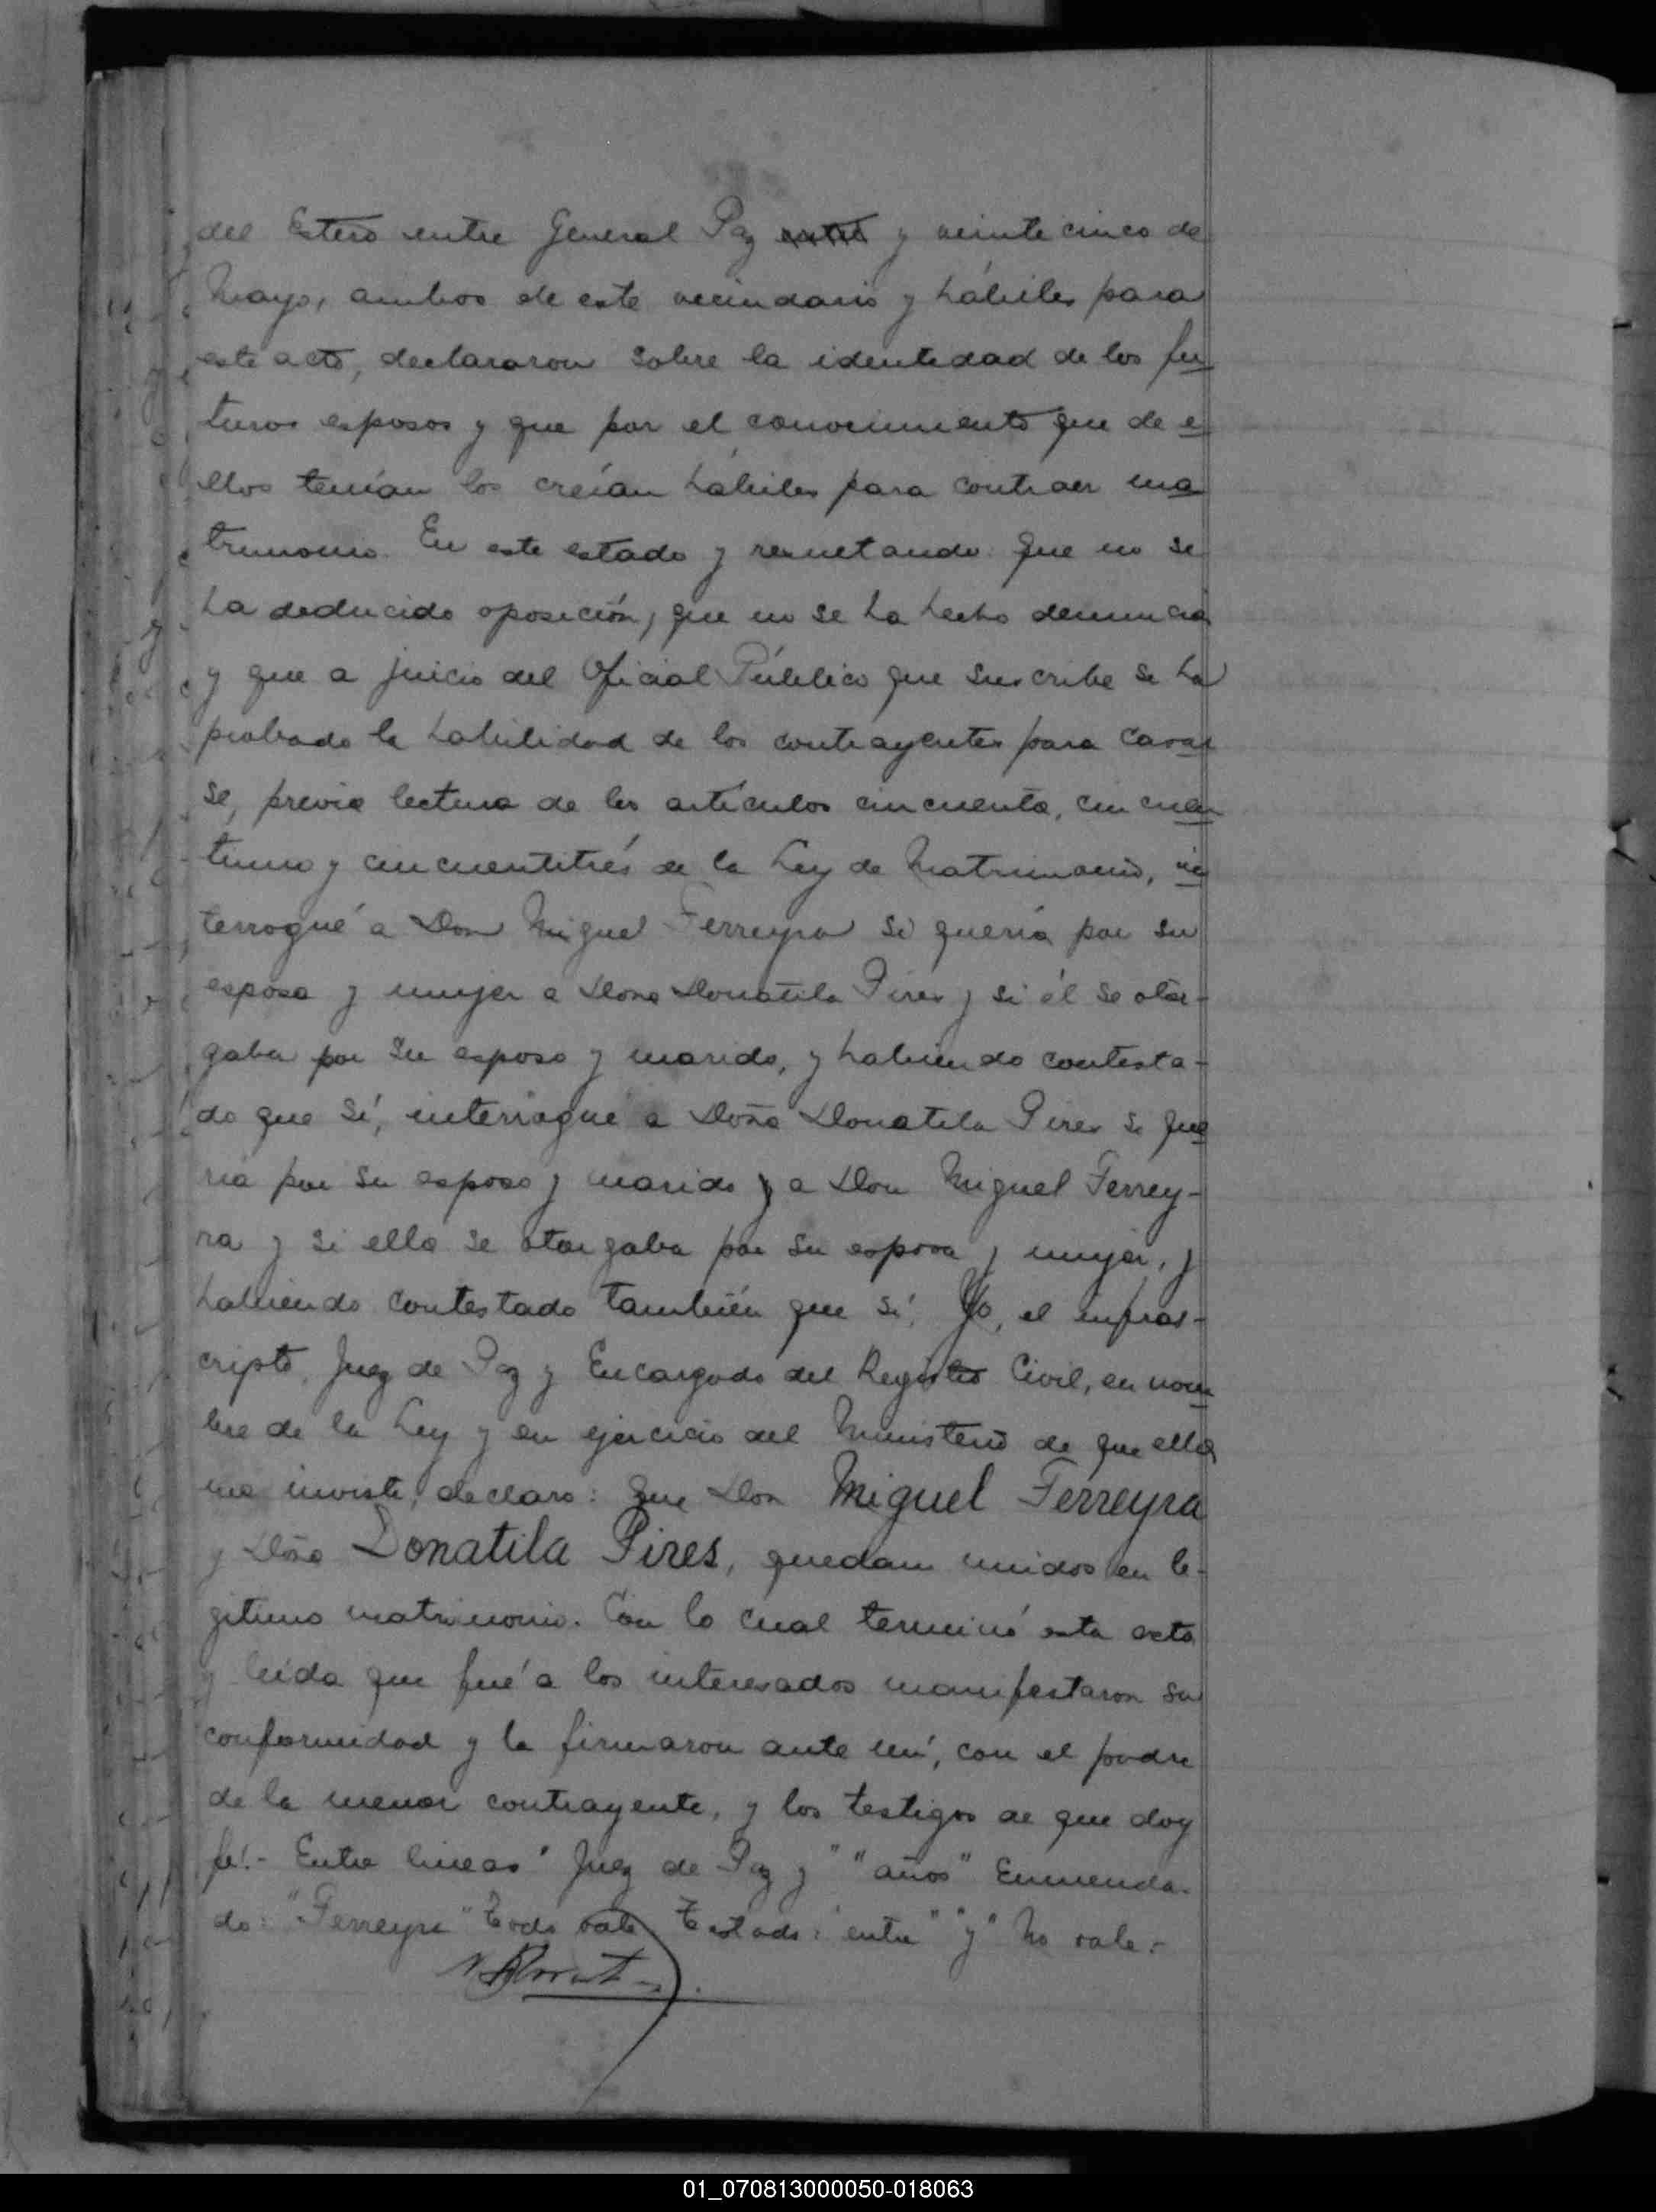 del Estero entre General Paz entre y veinte cinco de
Mayo, ambos de este vecindario y hábiles para
este acto, declararon sobre la identidad de los fu
turos esposos y que por el conocimiento que de e
ellos tenían los creían hábiles para contraer ma
trimonio. En este estado y resultando: que no se
ha deducido oposición, que no se ha hecho denuncia
y que a juicio del Oficial Público que suscribe se ha
probado la habilidad de los contrayentes para casar
se, previa lectura de los artículos cincuenta, cincuen
tiuno y cincuentitrés de la Ley de Matrimonio, in
terrogué a Don Miguel Ferreyra si quería por su
esposa y mujer a Doña Donatila Pires y si él se otor-
gaba por su esposo y marido, y habiendo contesta-
do que sí, interrogué a Doña Donatila Pires si que
ría por su esposo y marido y a Don Miguel Ferrey-
ra y si ella se otorgaba por su esposa y mujer, y
habiendo contestado también que sí. Yo, el infras-
cripto, Juez de Paz y Encargado del Registro Civil, en nom
bre de la Ley y en ejercicio del Ministerio de que ella
me inviste, declaro: que Don Miguel Ferreyra
y Doña Donatila Pires, quedam unidos en le-
gitimo matrimonio. Con lo cual terminó esta acta
y leída que fué a los interesados manifestaron su
conformidad y la firmaron ante mí, con el padre
de la menor contrayente, y los testigos de que doy
fé.- Entre lineas "Juez de Paz y" "años" Enmenda-
do: "Ferreyra" Todo vale Testado: "entre" "y" No vale.-
01_070813000050-018063